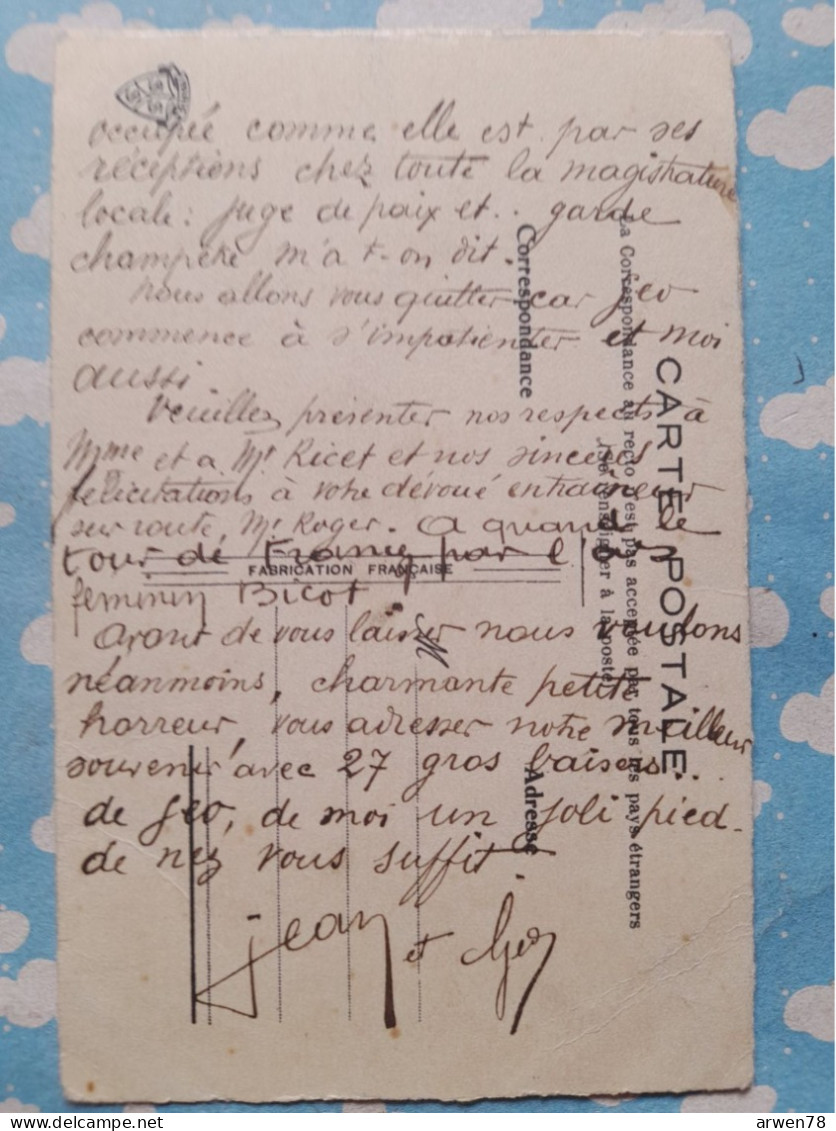 occupée comme elle est par ses
réceptions chez toute la magistrature
locale : juge de paix et .. garde
champêtre m'a t-on dit.
Nous allons vous quitter car Geo
commence à s'impatienter et moi
aussi
Veuillez présenter nos respects à
Mme et a Mr Ricet et nos sincères
félicitations à votre dévoué entraineur
sur route, Mr Roger. A quand le
tour de France par l'
feminin Bicot
Avant de vous laisser nous voulons
néanmoins, charmante petite
horreur, vous adresser notre meilleur
souvenir avec 27 gros baisers.
de Geo, de moi un joli pied-
de nez vous suffit.
Jean et Geo
CARTE POSTALE
La Correspondance au recto n'est pas acceptée par tous les pays étrangers
(Se renseigner à la poste)
Correspondance
Adresse
FABRICATION FRANÇAISE
arwen78